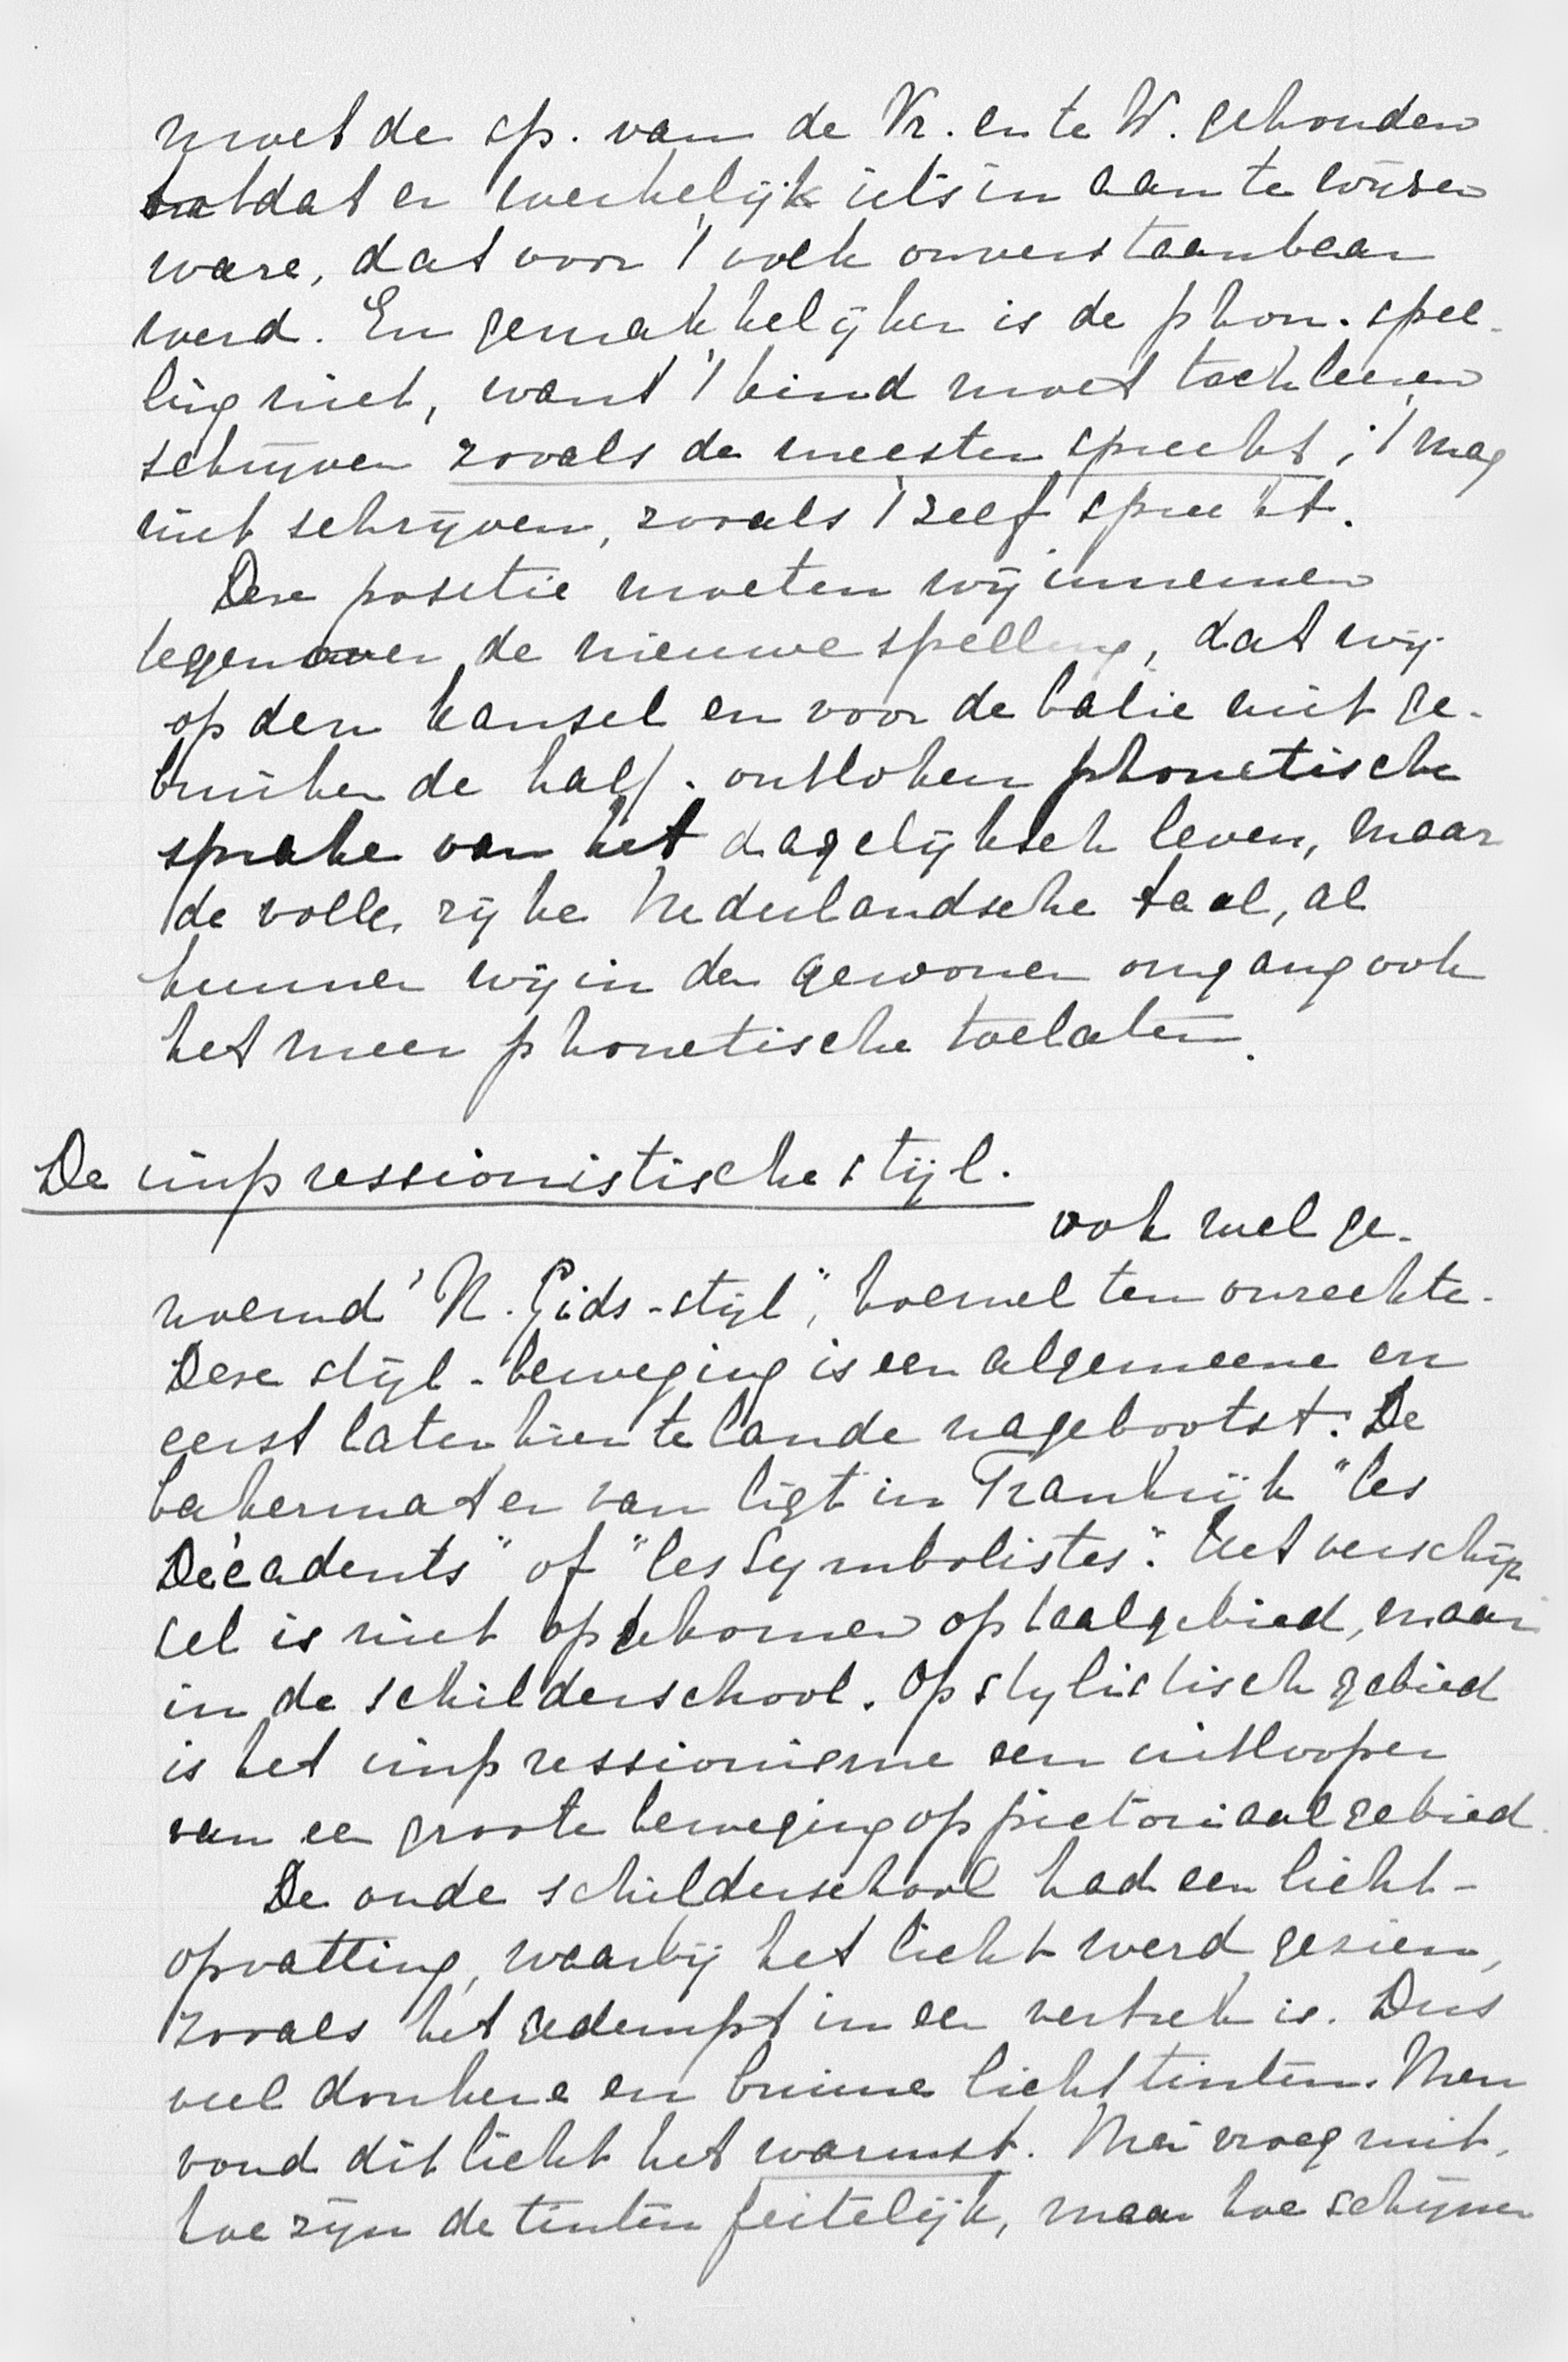 moet de sp. van de Vr. en te W. gehouden
totdat er werkelijk iets in aan te wijzen
ware, dat voor 't volk onverstaanbaar
werd. En gemakkelijker is de phon. spel-
ling niet, want 't kind moet toch leeren
schrijven zooals de meester spreekt; 't mag
niet schrijven, zooals 't zelf spreekt.
Deze positie moeten wij innemen
tegenover de nieuwe spelling, dat wij
op den kansel en voor de balie niet ge-
bruiken de half-ontloken phonetische
sprake van het dagelijksch leven, maar
de volle, rijke Nederlandsche taal, al
kunnen wij in den gewonen omgang ook
het meer phonetische toelaten.
De impressionistische stijl.
ook wel ge-
noemd "N. Gids-stijl", hoewel ten onrechte.
Deze stijl-beweging is een algemeene en
eerst later hier te lande nagebootst. De
bakermat er van ligt in Frankrijk "les
Décadents" of "les Symbolistes". Het verschijn
sel is niet opgekomen op taalgebied, maar
in de schilderschool. Op stylistisch gebied
is het impressionisme een uitlooper
van een groote beweging op pictoriaal gebied.
De oude schilderschool had een licht-
opvatting, waarbij het licht werd gezien,
zooals het gedempt in een vertrek is. Dus
veel donkere en bruine lichttinten. Men
vond dit licht het warmst. Men vroeg niet,
hoe zijn de tinten feitelijk, maar hoe schijnen